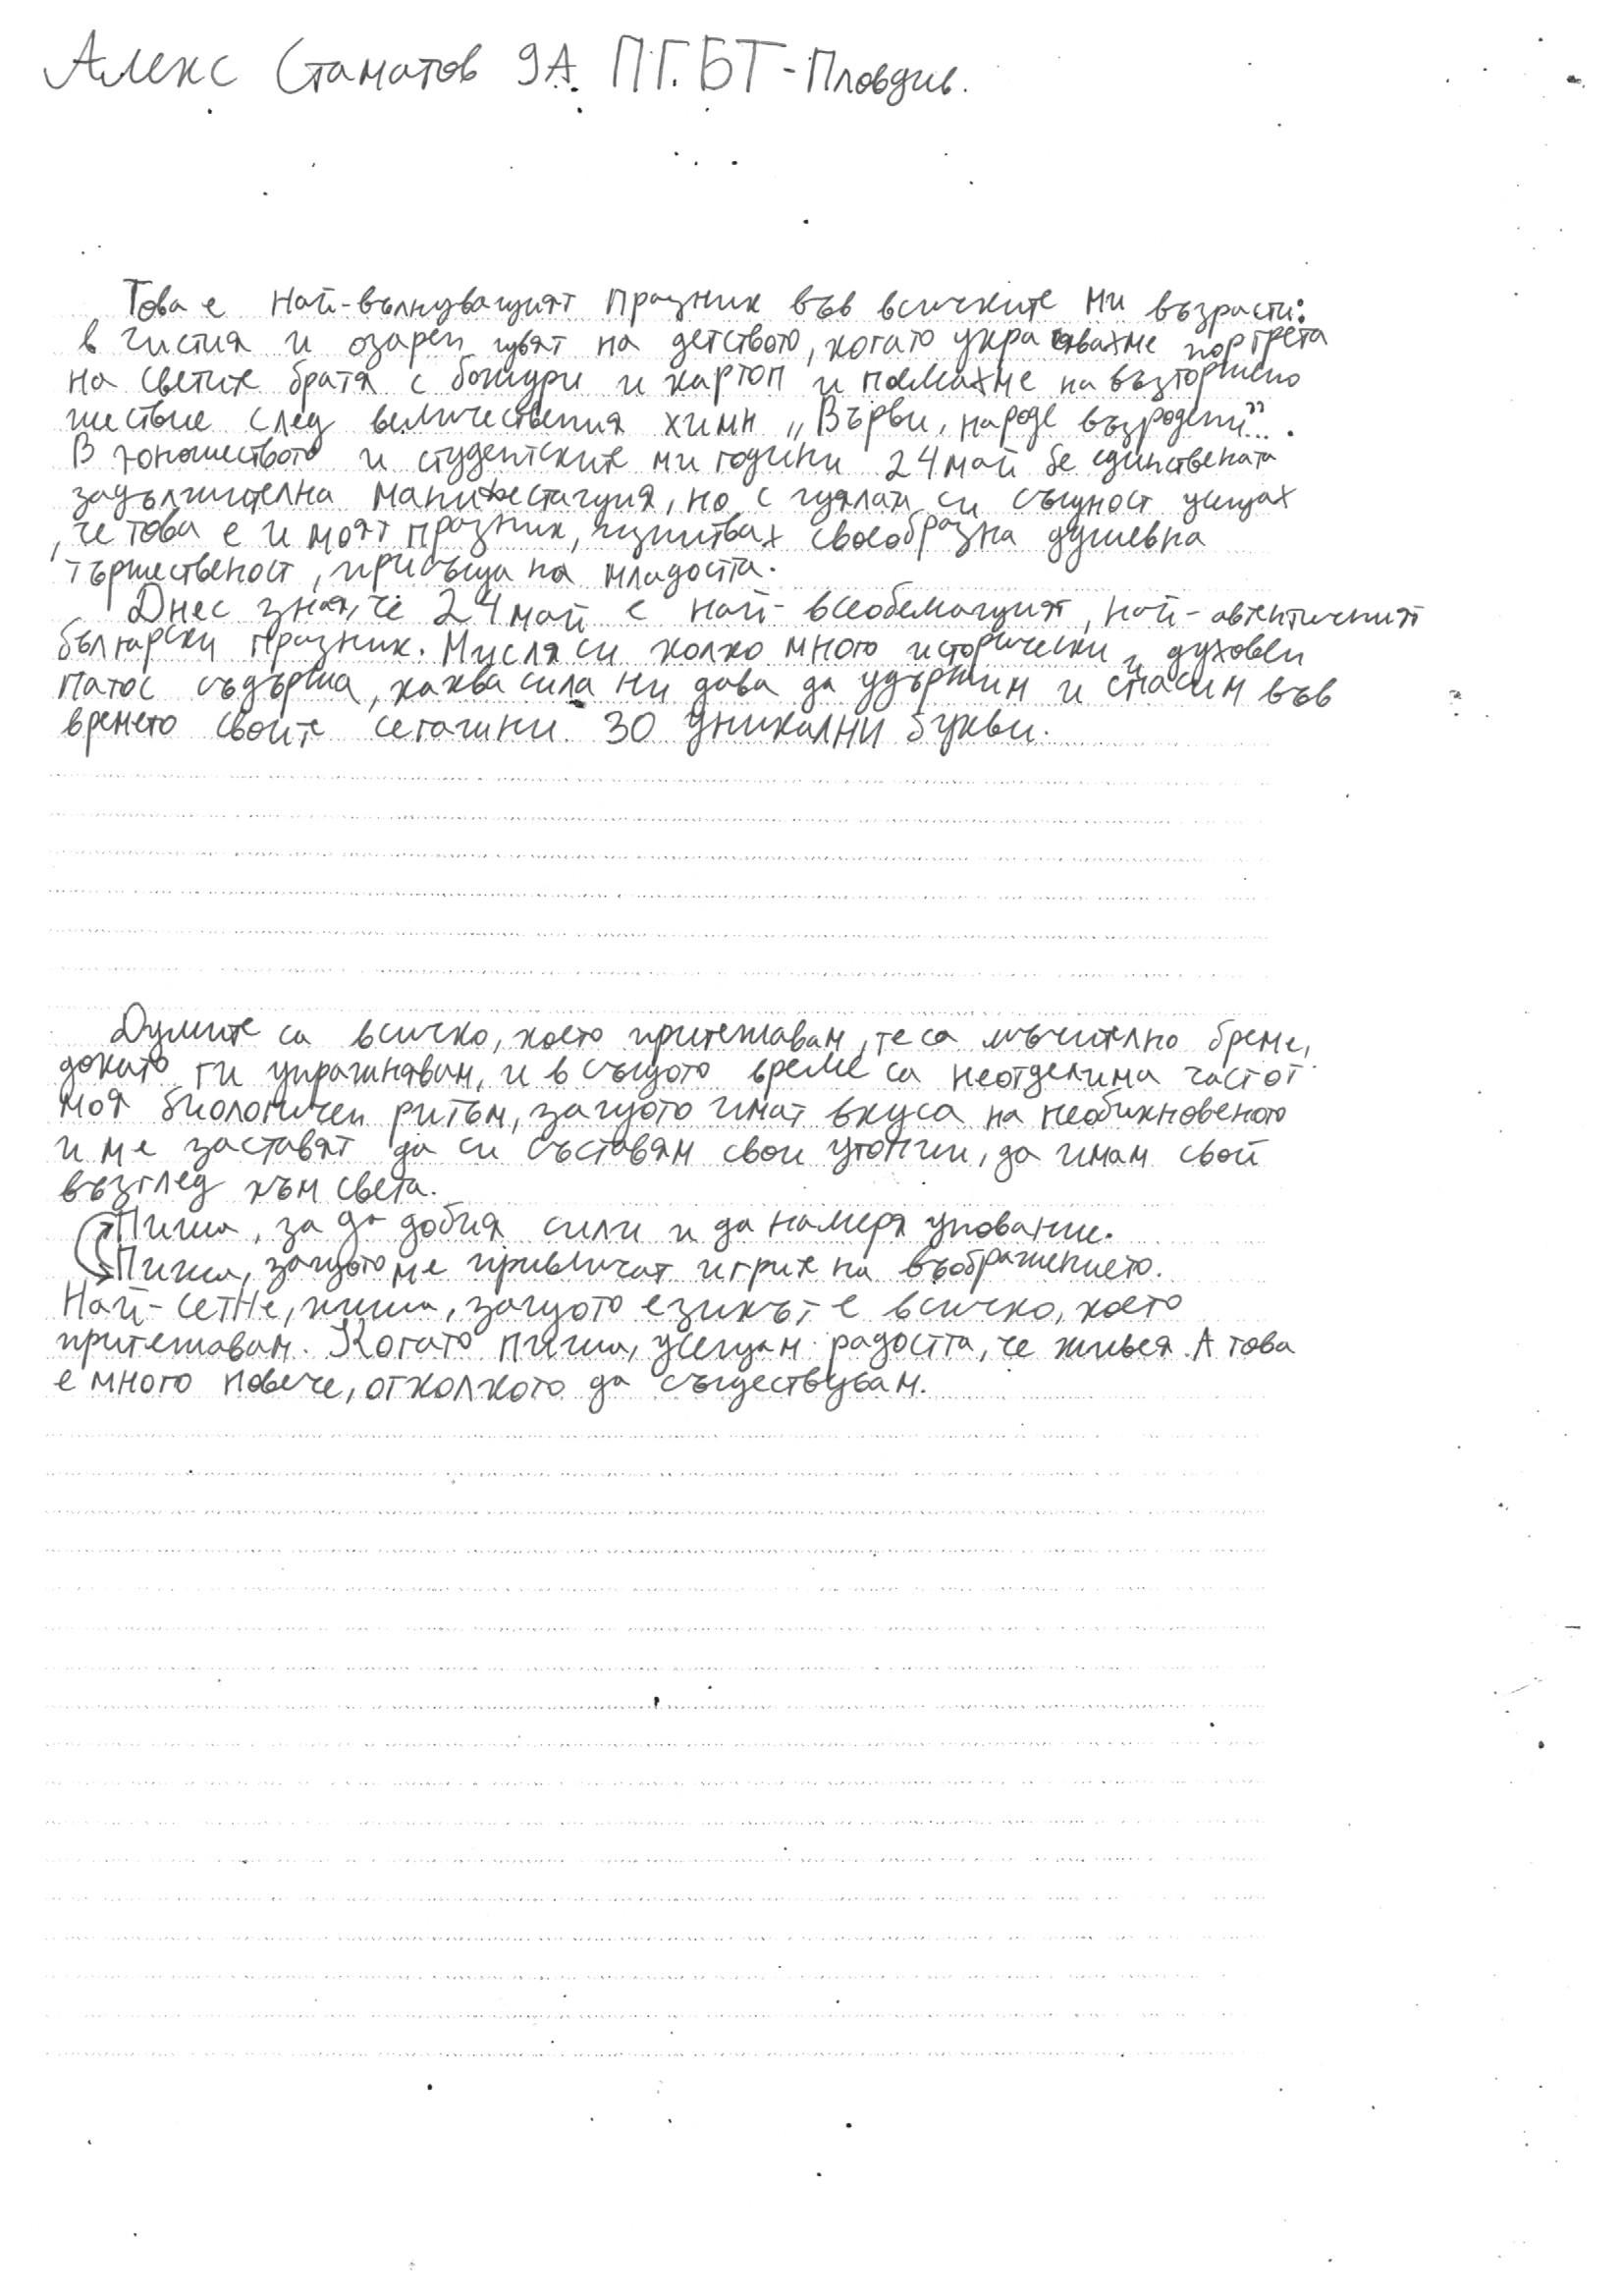 Алекс Стаматов 9А. ПГ.БТ - Пловдив.
Това е най-вълнуващият празник във всичките ми възрасти:
в чистия и озарен цвят на детството, когато украсявахме портрета
на светите братя с божури и картон и поемахме на възторжено
шествие след величествения химн „Върви, народе възродени"...
В юношеството и студентските ми години 24 май бе единствената
задължителна манифестация, но с цялата си същност усещах
, че това е и моят празник, изпитвах своеобразна душевна
тържественост, присъща на младостта.
Днес зная, че 24 май е най-всеобемащият, най-автентичният
български празник. Мисля си колко много исторически и духовен
патос съдържа, каква сила ни дава да удържим и спасим във
времето своите сегашни 30 уникални букви.
Думите са всичко, което притежавам, те са мъчително бреме,
докато ги упражнявам, и в същото време са неотделима част от
моя биологичен ритъм, защото имат вкуса на необикновеното
и ме заставят да си съставям свои утопии, да имам свой
възглед към света.
Пиша, за да добия сили и да намеря упование.
Пиша, защото ме привличат игрите на въображението.
Най-сетне, пиша, защото езикът е всичко, което
притежавам. Когато пиша, усещам радостта, че живея. А това
е много повече, отколкото да съществувам.